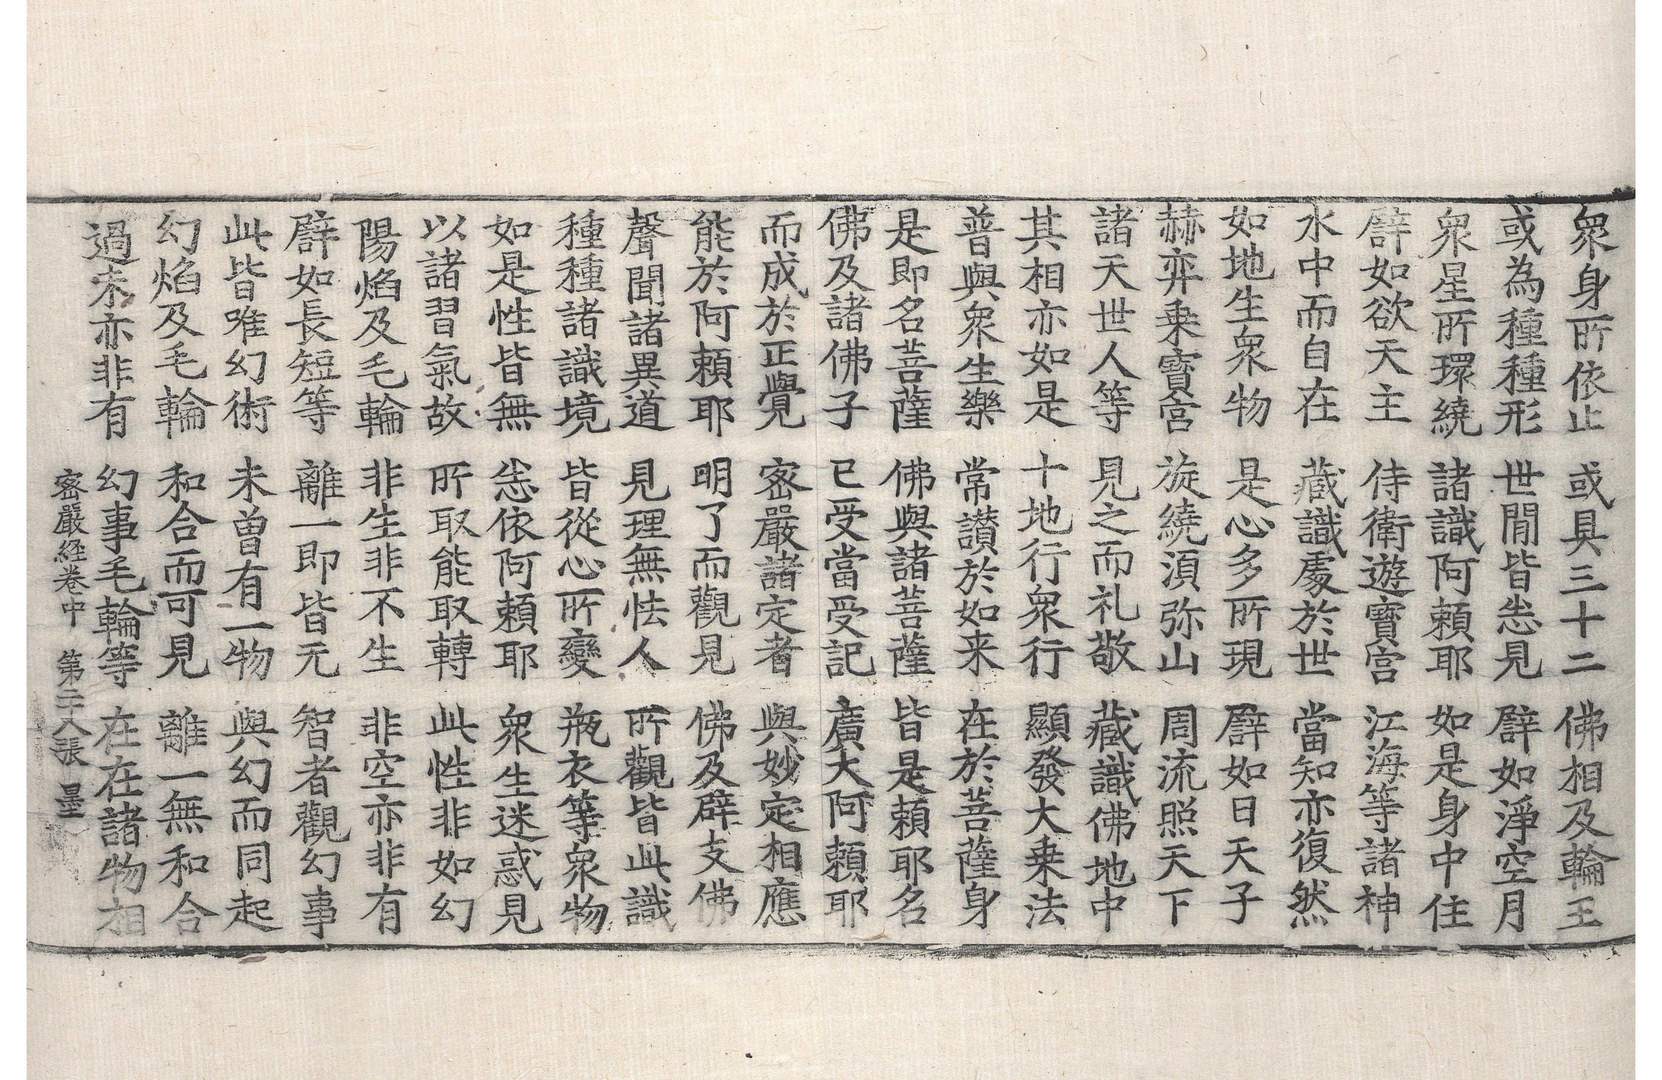 衆身所依止 或具三十二 佛相及輪王
或為種種形 世間皆悉見 譬如淨空月
衆星所環繞 諸識阿賴耶 如是身中住
譬如欲天主 侍衛遊寶宮 江海等諸神
水中而自在 藏識處於世 當知亦復然
如地生衆物 是心多所現 譬如日天子
赫弈乗寶宮 旋繞須弥山 周流照天下
諸天世人等 見之而礼敬 藏識佛地中
其相亦如是 十地行衆行 顯發大乗法
普與衆生樂 常讃於如来 在於菩薩身
是即名菩薩 佛與諸菩薩 皆是賴耶名
佛及諸佛子 已受當受記 廣大阿賴耶
而成於正覺 密嚴諸定者 與妙定相應
能於阿賴耶 明了而觀見 佛及辟支佛
聲聞諸異道 見理無怯人 所觀皆此識
種種諸識境 皆從心所變 瓶衣等衆物
如是性皆無 悉依阿賴耶 衆生迷惑見
以諸習氣故 所取能取轉 此性非如幻
陽焰及毛輪 非生非不生 非空亦非有
譬如長短等 離一即皆无 智者觀幻事
此皆唯幻術 未曽有一物 與幻而同起
幻焰及毛輪 和合而可見 離一無和合
過未亦非有 幻事毛輪等 在在諸物相
密嚴経卷中 第二十八張 墨